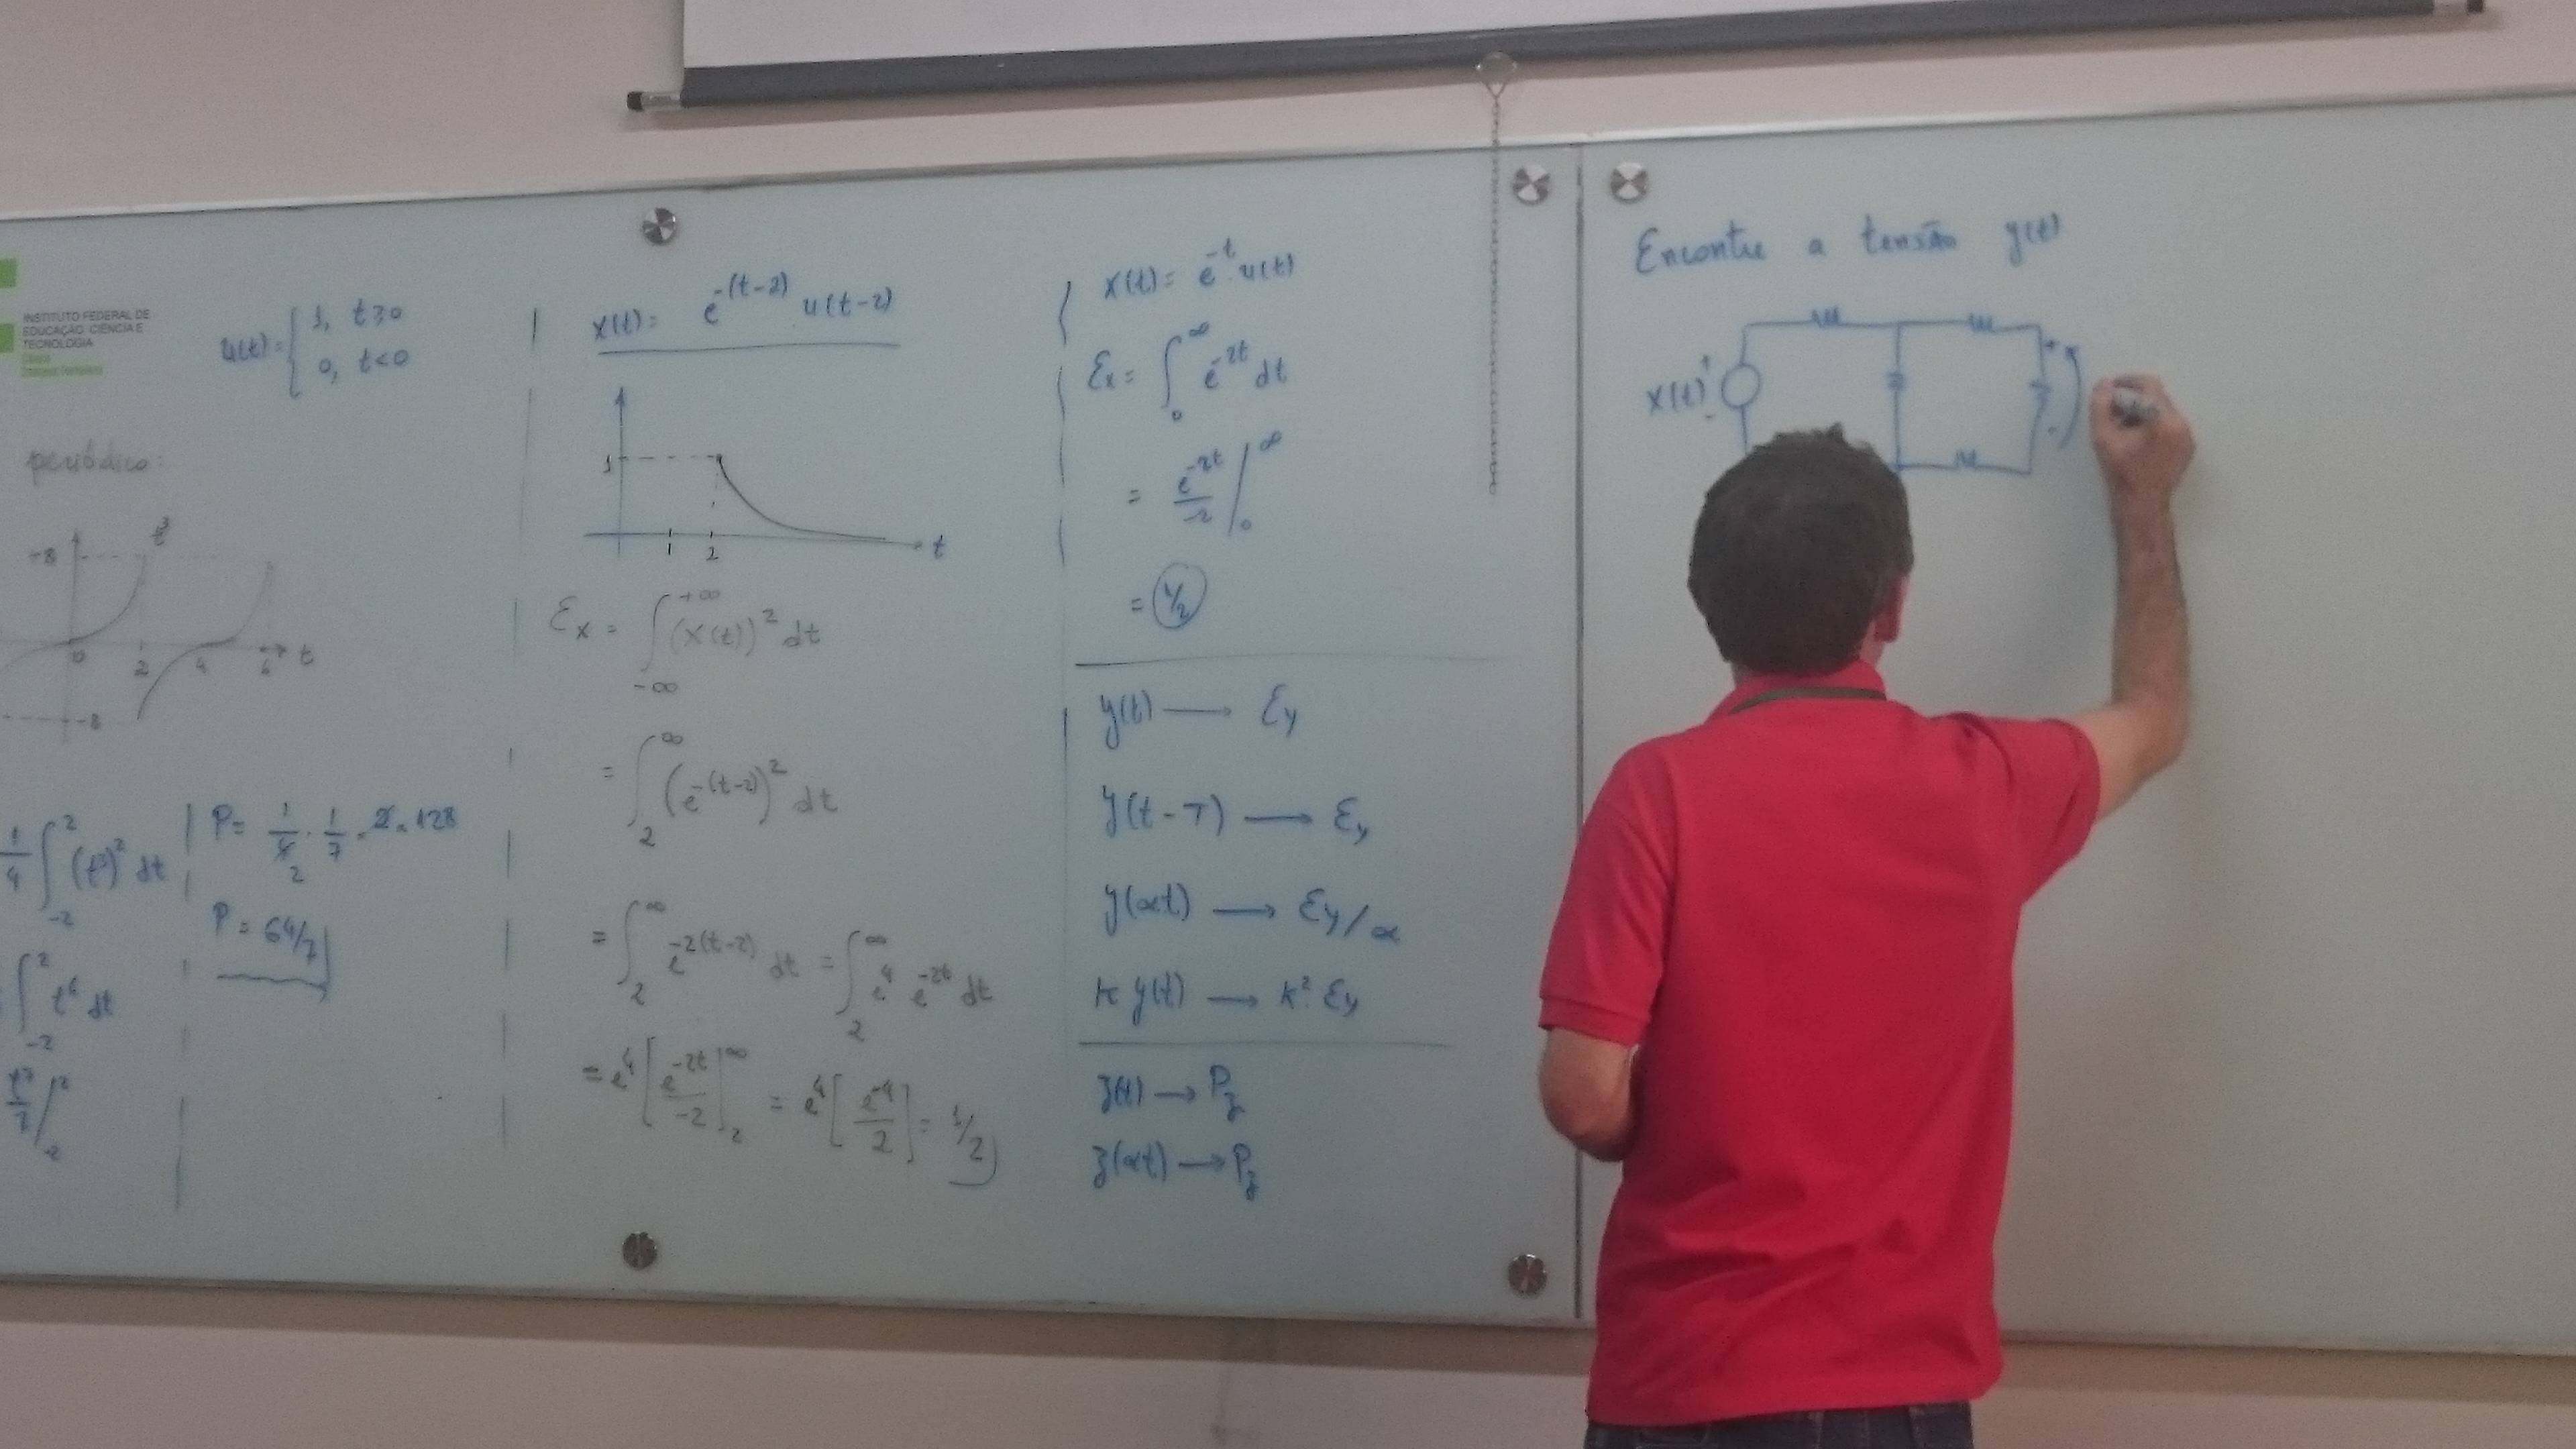 INSTITUTO FEDERAL DE
EDUCAÇÃO, CIÊNCIA E
TECNOLOGIA
u(t) = { 1, t ≥ 0
0, t < 0
periódico:
+8
t³
0 2 4 6 t
-8
1/4 ∫_{-2}^{2} (t³)² dt
∫_{-2}^{2} t⁶ dt
t⁷/7 |_{-2}^{2}
P = 1/4 · 1/7 · 2 · 128
2
P = 64/7
x(t) = e^{-(t-2)} u(t-2)
1
1 2 t
Ex = ∫_{-∞}^{+∞} (x(t))² dt
= ∫_{2}^{∞} (e^{-(t-2)})² dt
= ∫_{2}^{∞} e^{-2(t-2)} dt = ∫_{2}^{∞} e⁴ e^{-2t} dt
= e⁴ [e^{-2t}/-2]_{2}^{∞} = e⁴ [e^{-4}/2] = 1/2
x(t) = e^{-t} · u(t)
Ex = ∫_{0}^{∞} e^{-2t} dt
= e^{-2t}/-2 |_{0}^{∞}
= 1/2
y(t) → Ey
y(t - T) → Ey
y(αt) → Ey/α
k y(t) → k² · Ey
z(t) → Pz
z(αt) → Pz
Encontre a tensão y(t)
x(t) + -
+ -